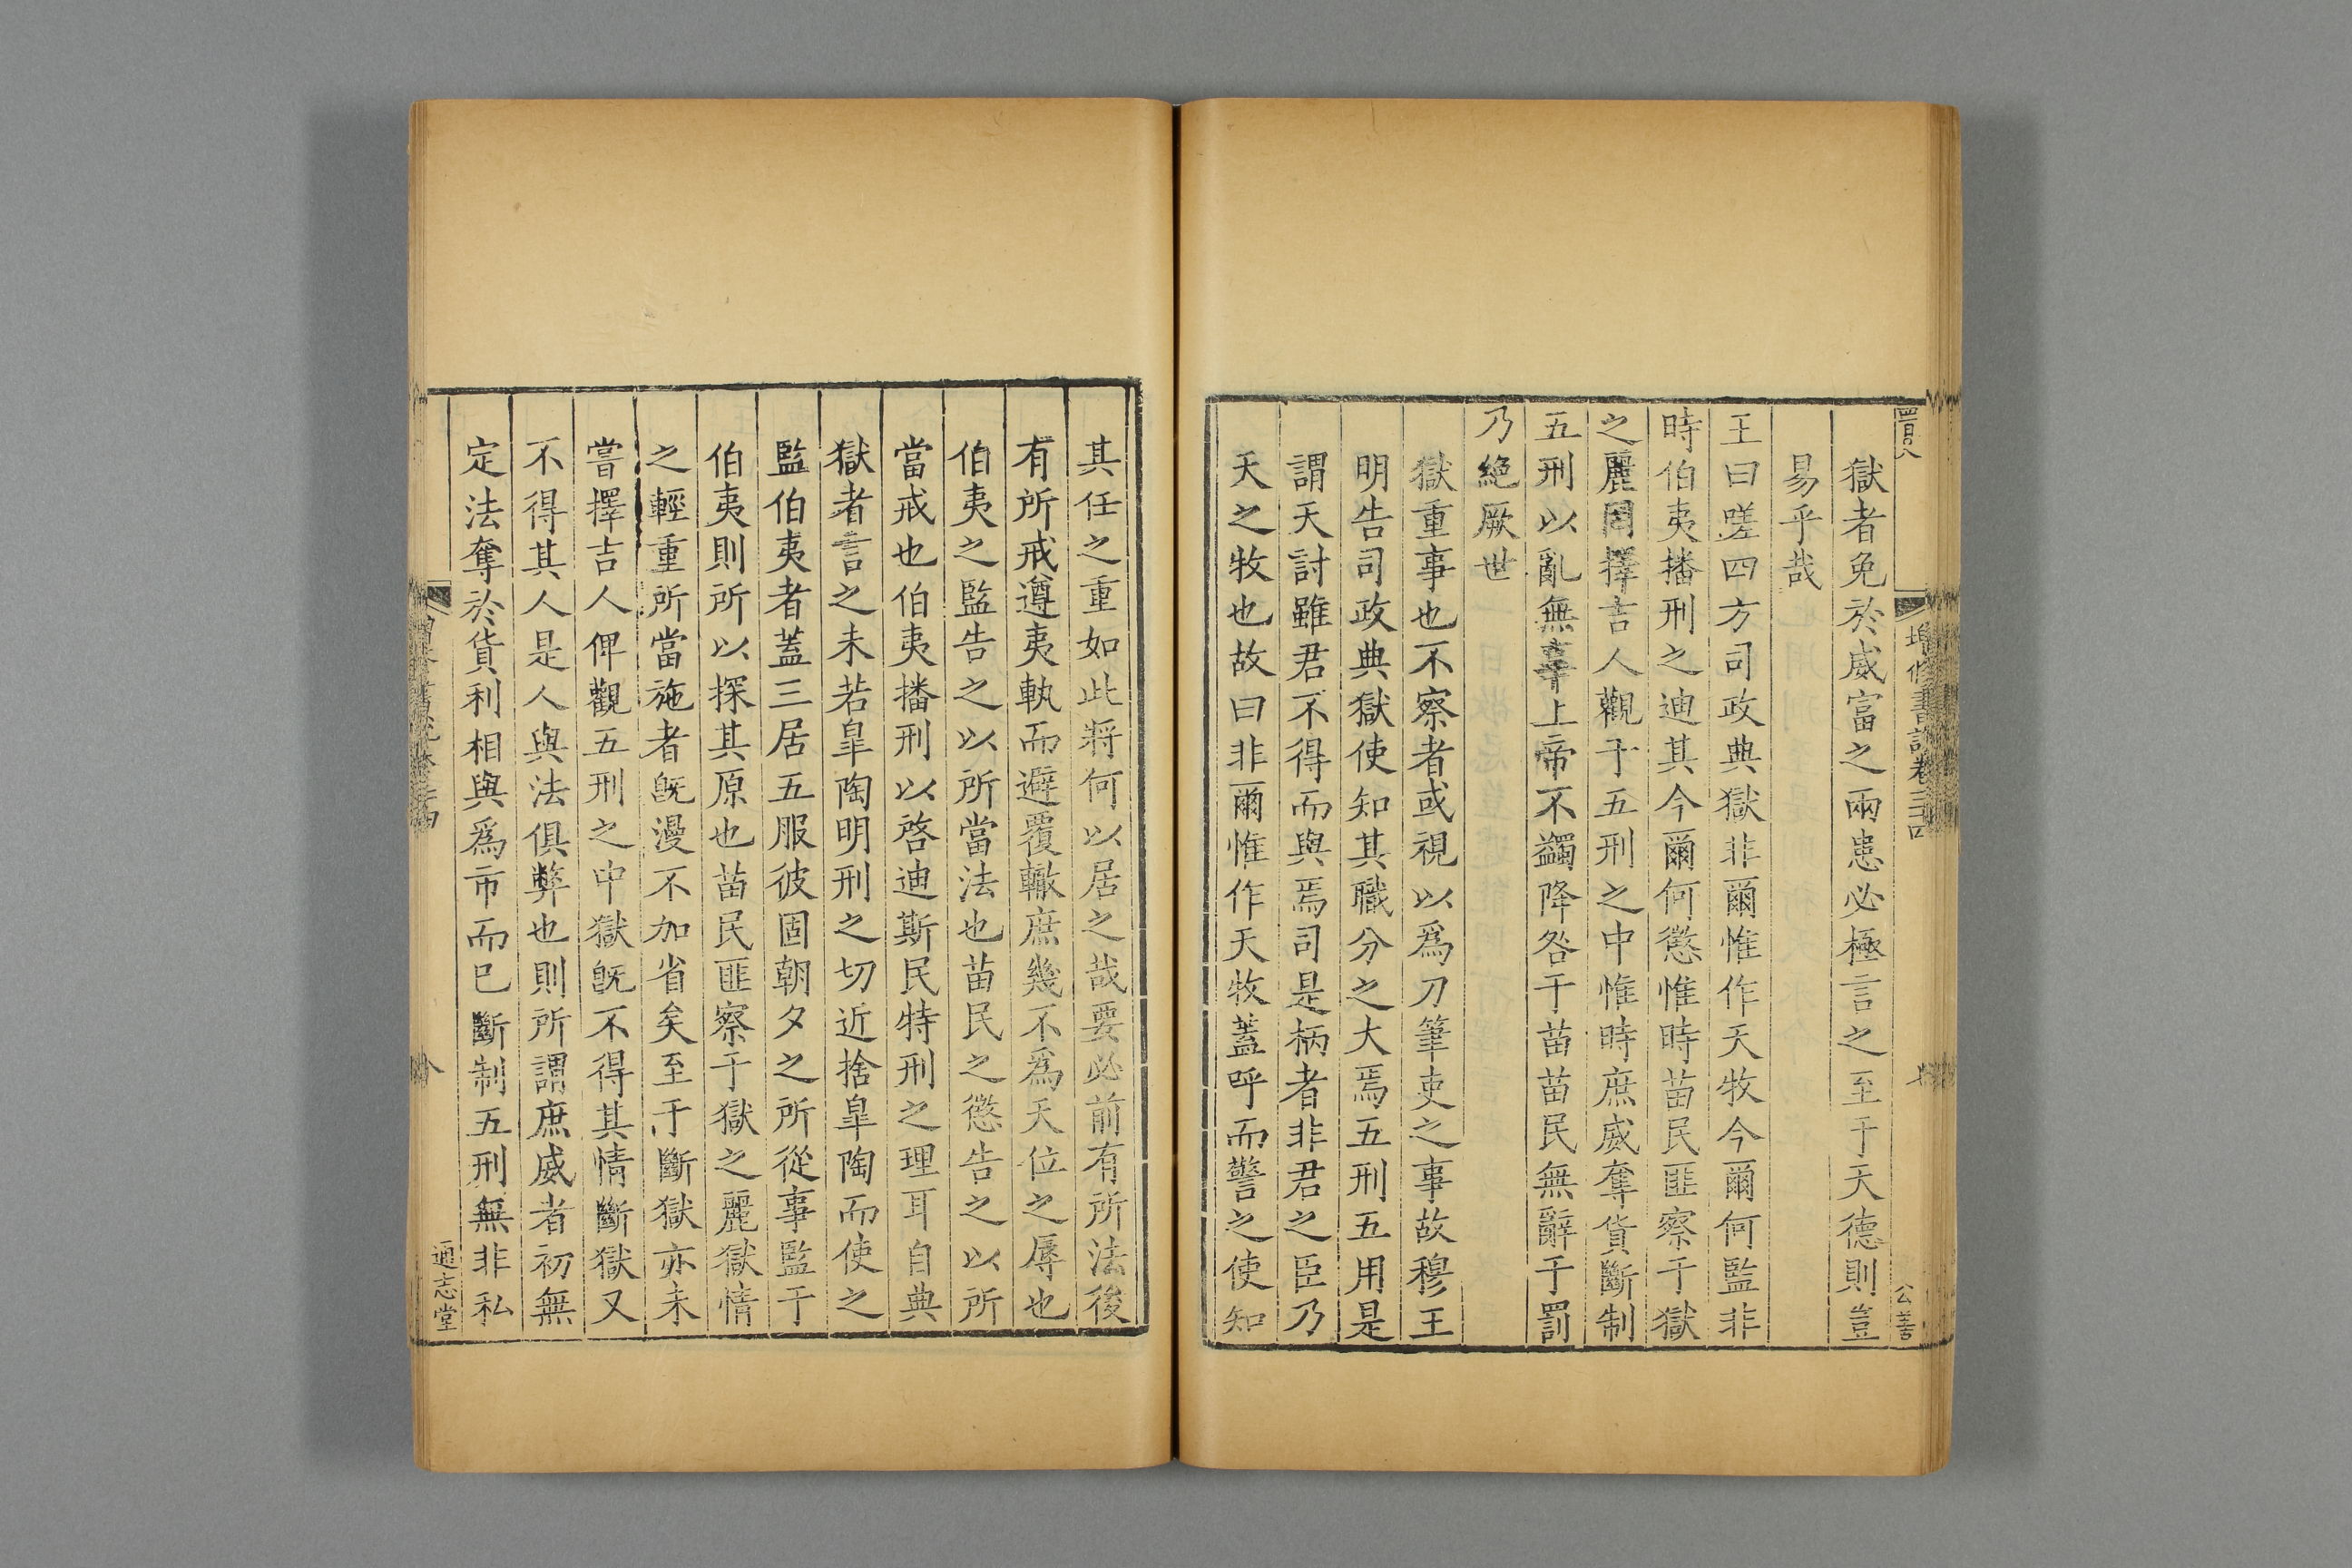 增修書說卷三十四
七
公善
獄者免於威富之兩患必極言之至于天德則豈
易乎哉
王曰嗟四方司政典獄非爾惟作天牧今爾何監非
時伯夷播刑之迪其今爾何懲惟時苗民匪察于獄
之麗罔擇吉人觀于五刑之中惟時庶威奪貨斷制
五刑以亂無辜上帝不蠲降咎于苗苗民無辭于罰
乃絕厥世
獄重事也不察者或視以爲刀筆吏之事故穆王
明告司政典獄使知其職分之大焉五刑五用是
謂天討雖君不得而與焉司是柄者非君之臣乃
天之牧也故曰非爾惟作天牧蓋呼而警之使知
其任之重如此將何以居之哉要必前有所法後
有所戒遵夷執而避覆轍庶幾不爲天位之辱也
伯夷之監告之以所當法也苗民之懲告之以所
當戒也伯夷播刑以啓迪斯民特刑之理耳自典
獄者言之未若臯陶明刑之切近捨臯陶而使之
監伯夷者蓋三居五服彼固朝夕之所從事監于
伯夷則所以探其原也苗民匪察于獄之麗獄情
之輕重所當施者旣漫不加省矣至于斷獄亦未
嘗擇吉人俾觀五刑之中獄旣不得其情斷獄又
不得其人是人與法俱弊也則所謂庶威者初無
定法奪於貨利相與爲市而已斷制五刑無非私
八
通志堂